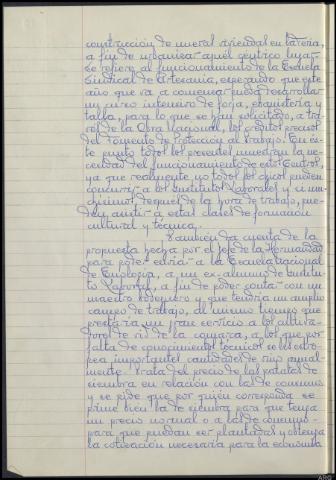 construcción de nuevas viviendas en la feria,
a fin de urbanizar aquél céntrico lugar.
Se refiere al funcionamiento de la Escuela
Sindical de Artesanía, esperando que este
año que va a comenzar pueda desarrollar
un curso intensivo de forja, ebanistería y
talla, para lo que se han solicitado, a tra-
vés de la Obra Nacional, los créditos precisos
del Fomento de Protección al Trabajo. En és-
te punto todos los presentes la ne-
cesidad del funcionamiento de estos Centros,
ya que realmente no todos los chicos pueden
concurrir a los Institutos Laborales y si mu-
chísimos, después de la hora de trabajo, pue-
den asistir a estas clases de formación
cultural y técnica.
También da cuenta de la
propuesta hecha por el Jefe de la Hermandad
para poder enviar a la Escuela Nacional
de Enología, a un ex-alumno de Institu-
to Laboral, a fin de poder contar con un
maestro bodeguero y que tendría un amplio
campo de trabajo, al mismo tiempo que
prestaría un gran servicio a los cultiva-
dores de vid de la comarca, a los que por
falta de conocimientos técnicos se les estro-
pea importantes cantidades de vino anual-
mente. Trata del precio de las patatas de
siembra en relación con las de consumo
y se pide que por quien corresponda se
prime bien la de siembra para que tenga
un precio normal o a las de consumo
para que puedan ser plantadas y obtenga
la cotización necesaria para la economía